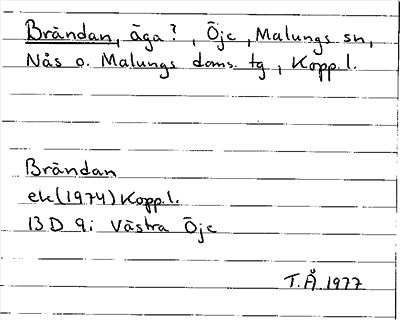 Brändan, äga?, Öje, Malungs sn,
Nås o. Malungs doms. tg, Kopp.l.
Brändan
ek (1974) Kopp.l.
13 D 9i Västra Öje
T.Å 1977